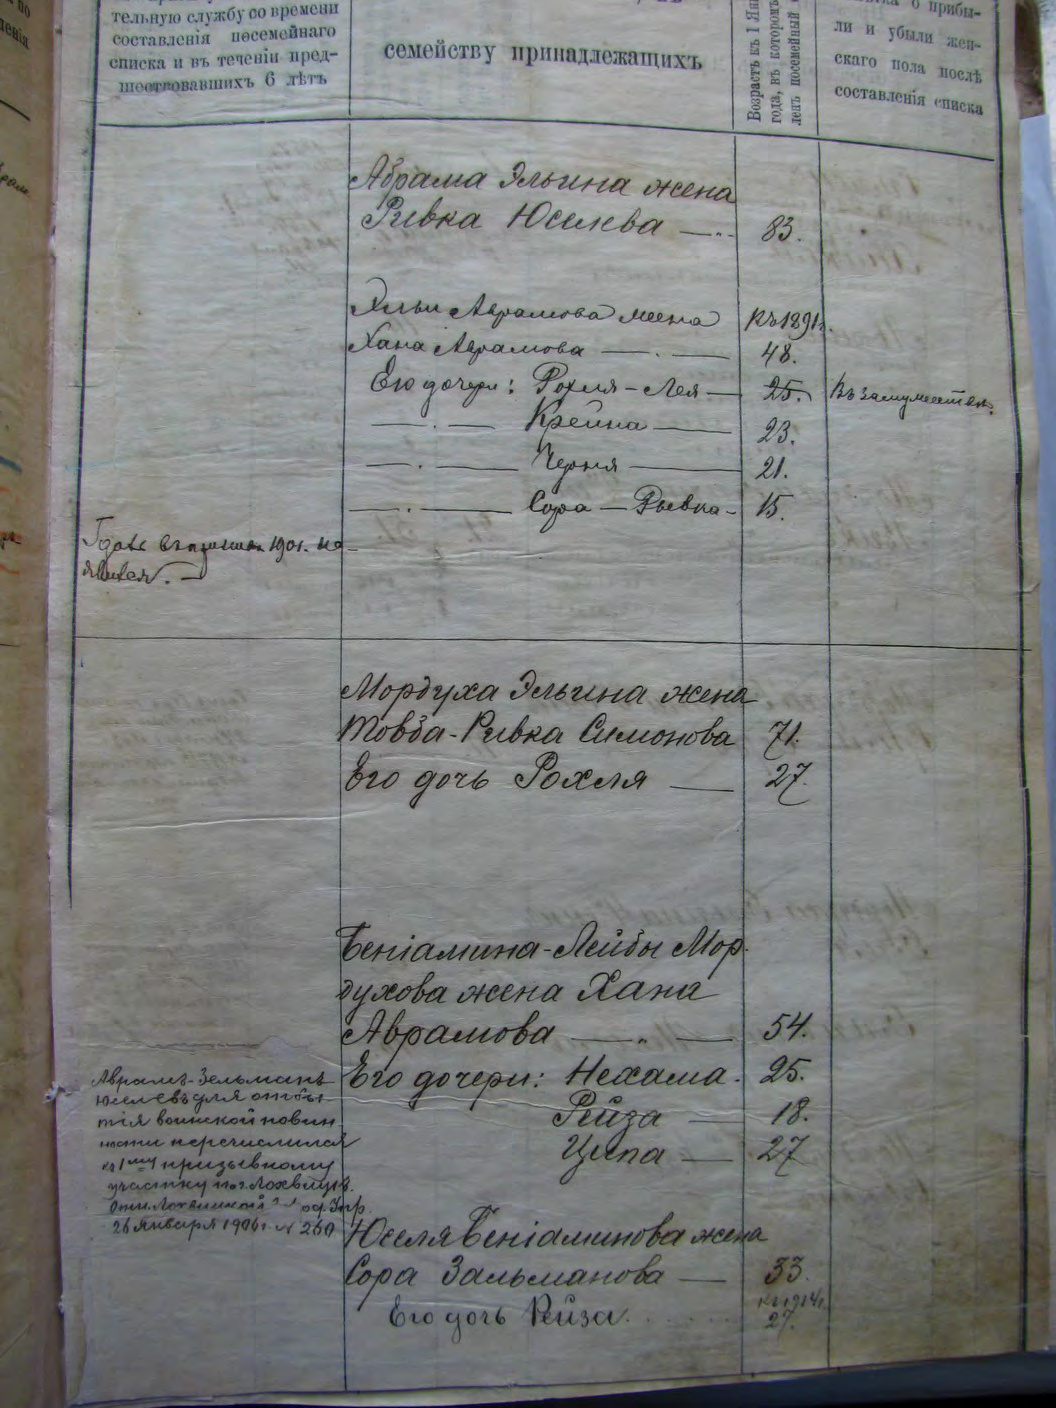 тельную службу со времени
составленія посемейнаго
списка и въ теченіи пред-
шествовавшихъ 6 лѣтъ
семейству принадлежащихъ
Возрастъ къ 1 Янв
года, въ которомъ
ленъ посемейный
о прибы-
ли и убыли жен-
скаго пола послѣ
составленія списка
Абрама Эльина жена
Ривка Юселева — 83.
Эльи Аврамова жена къ 1891г.
Хана Аврамова — 48.
Его дочери: Рохля-Лея — 25. Въ замужествѣ.
Крейна — 23.
Черня — 21.
Сора-Рывка - 15.
1901.
Мордуха Эльина жена
Товба-Ривка Симонова 71.
Его дочь Рохля — 27.
Беніамина-Лейбы Мор-
духова жена Хана
Аврамова — 54.
Его дочери: Нехама. 25.
Рейза — 18.
Ципа — 27
Аврамъ-Зельманъ
Юселевъ для отбы-
тія воинской повин
ности перечислился
къ 1му призывному
участку по г. Лохвицѣ.
26 Января 1906г. № 260
Юселя Беніаминова жена
Сора Зальманова — 33.
къ 1914г.
Его дочь Рейза. 27.